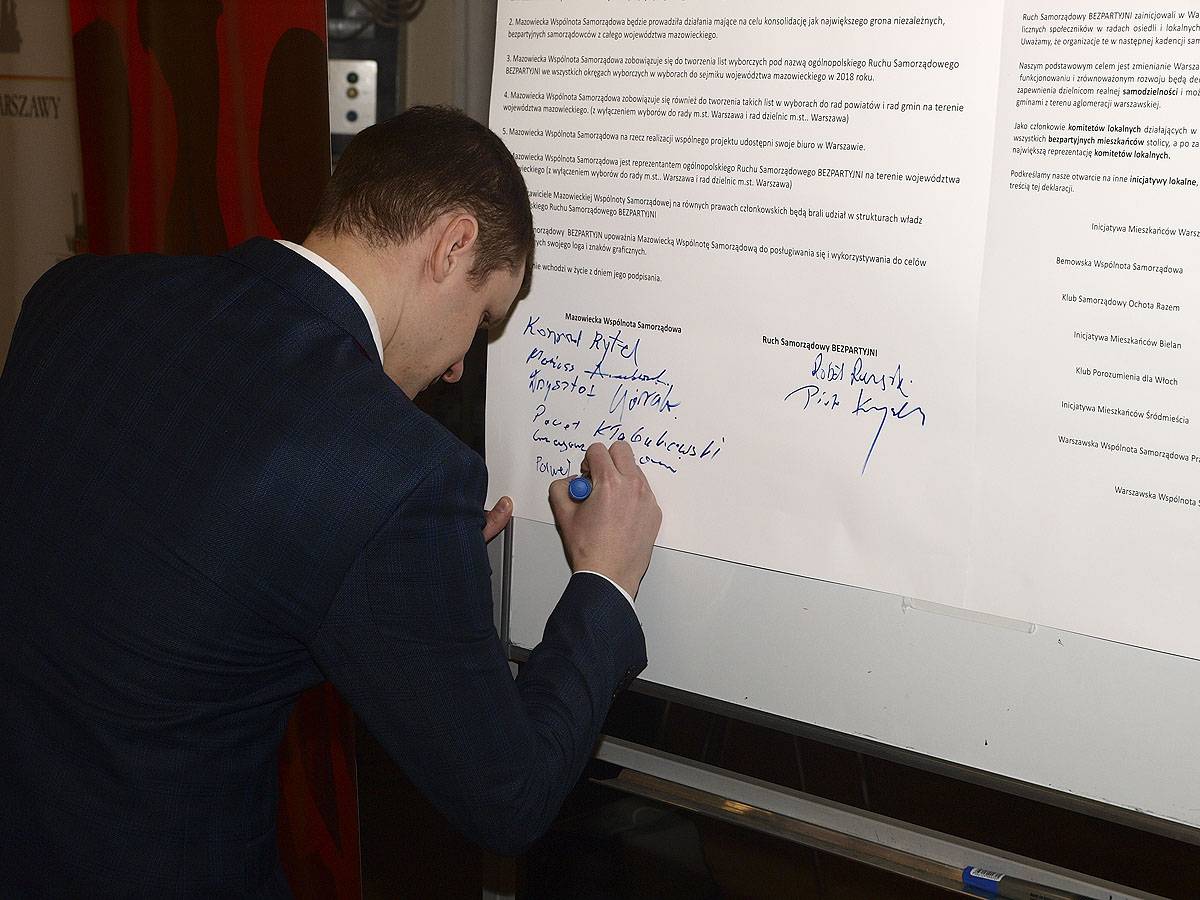 WARSZAWY
2. Mazowiecka Wspólnota Samorządowa będzie prowadziła działania mające na celu konsolidację jak największego grona niezależnych,
bezpartyjnych samorządowców z całego województwa mazowieckiego.
3. Mazowiecka Wspólnota Samorządowa zobowiązuje się do tworzenia list wyborczych pod nazwą ogólnopolskiego Ruchu Samorządowego
BEZPARTYJNI we wszystkich okręgach wyborczych w wyborach do sejmiku województwa mazowieckiego w 2018 roku.
4. Mazowiecka Wspólnota Samorządowa zobowiązuje się również do tworzenia takich list w wyborach do rad powiatów i rad gmin na terenie
województwa mazowieckiego. (z wyłączeniem wyborów do rady m.st. Warszawa i rad dzielnic m.st.. Warszawa)
5. Mazowiecka Wspólnota Samorządowa na rzecz realizacji wspólnego projektu udostępni swoje biuro w Warszawie.
Mazowiecka Wspólnota Samorządowa jest reprezentantem ogólnopolskiego Ruchu Samorządowego BEZPARTYJNI na terenie województwa
(z wyłączeniem wyborów do rady m.st.. Warszawa i rad dzielnic m.st. Warszawa)
Mazowieckiej Wspólnoty Samorządowej na równych prawach członkowskich będą brali udział w strukturach władz
Ruchu Samorządowego BEZPARTYJNI
BEZPARTYJN upoważnia Mazowiecką Wspólnotę Samorządową do posługiwania się i wykorzystywania do celów
swojego loga i znaków graficznych.
wchodzi w życie z dniem jego podpisania.
Mazowiecka Wspólnota Samorządowa
Konrad Rytel
Mariusz
Krzysztof Górak
Paweł Kłobukowski
Paweł
Ruch Samorządowy BEZPARTYJNI
Piotr
Ruch Samorządowy BEZPARTYJNI zainicjowali w
licznych społeczników w radach osiedli i lokalnych
Uważamy, że organizacje te w następnej kadencji
Naszym podstawowym celem jest zmienianie
funkcjonowaniu i zrównoważonym rozwoju będą
zapewnienia dzielnicom realnej samodzielności i
gminami z terenu aglomeracji warszawskiej.
Jako członkowie komitetów lokalnych działających w
wszystkich bezpartyjnych mieszkańców stolicy, a po
największą reprezentację komitetów lokalnych.
Podkreślamy nasze otwarcie na inne inicjatywy lokalne,
treścią tej deklaracji.
Inicjatywa Mieszkańców
Bemowska Wspólnota Samorządowa
Klub Samorządowy Ochota Razem
Inicjatywa Mieszkańców Bielan
Klub Porozumienia dla Włoch
Inicjatywa Mieszkańców Śródmieścia
Warszawska Wspólnota Samorządowa
Warszawska Wspólnota